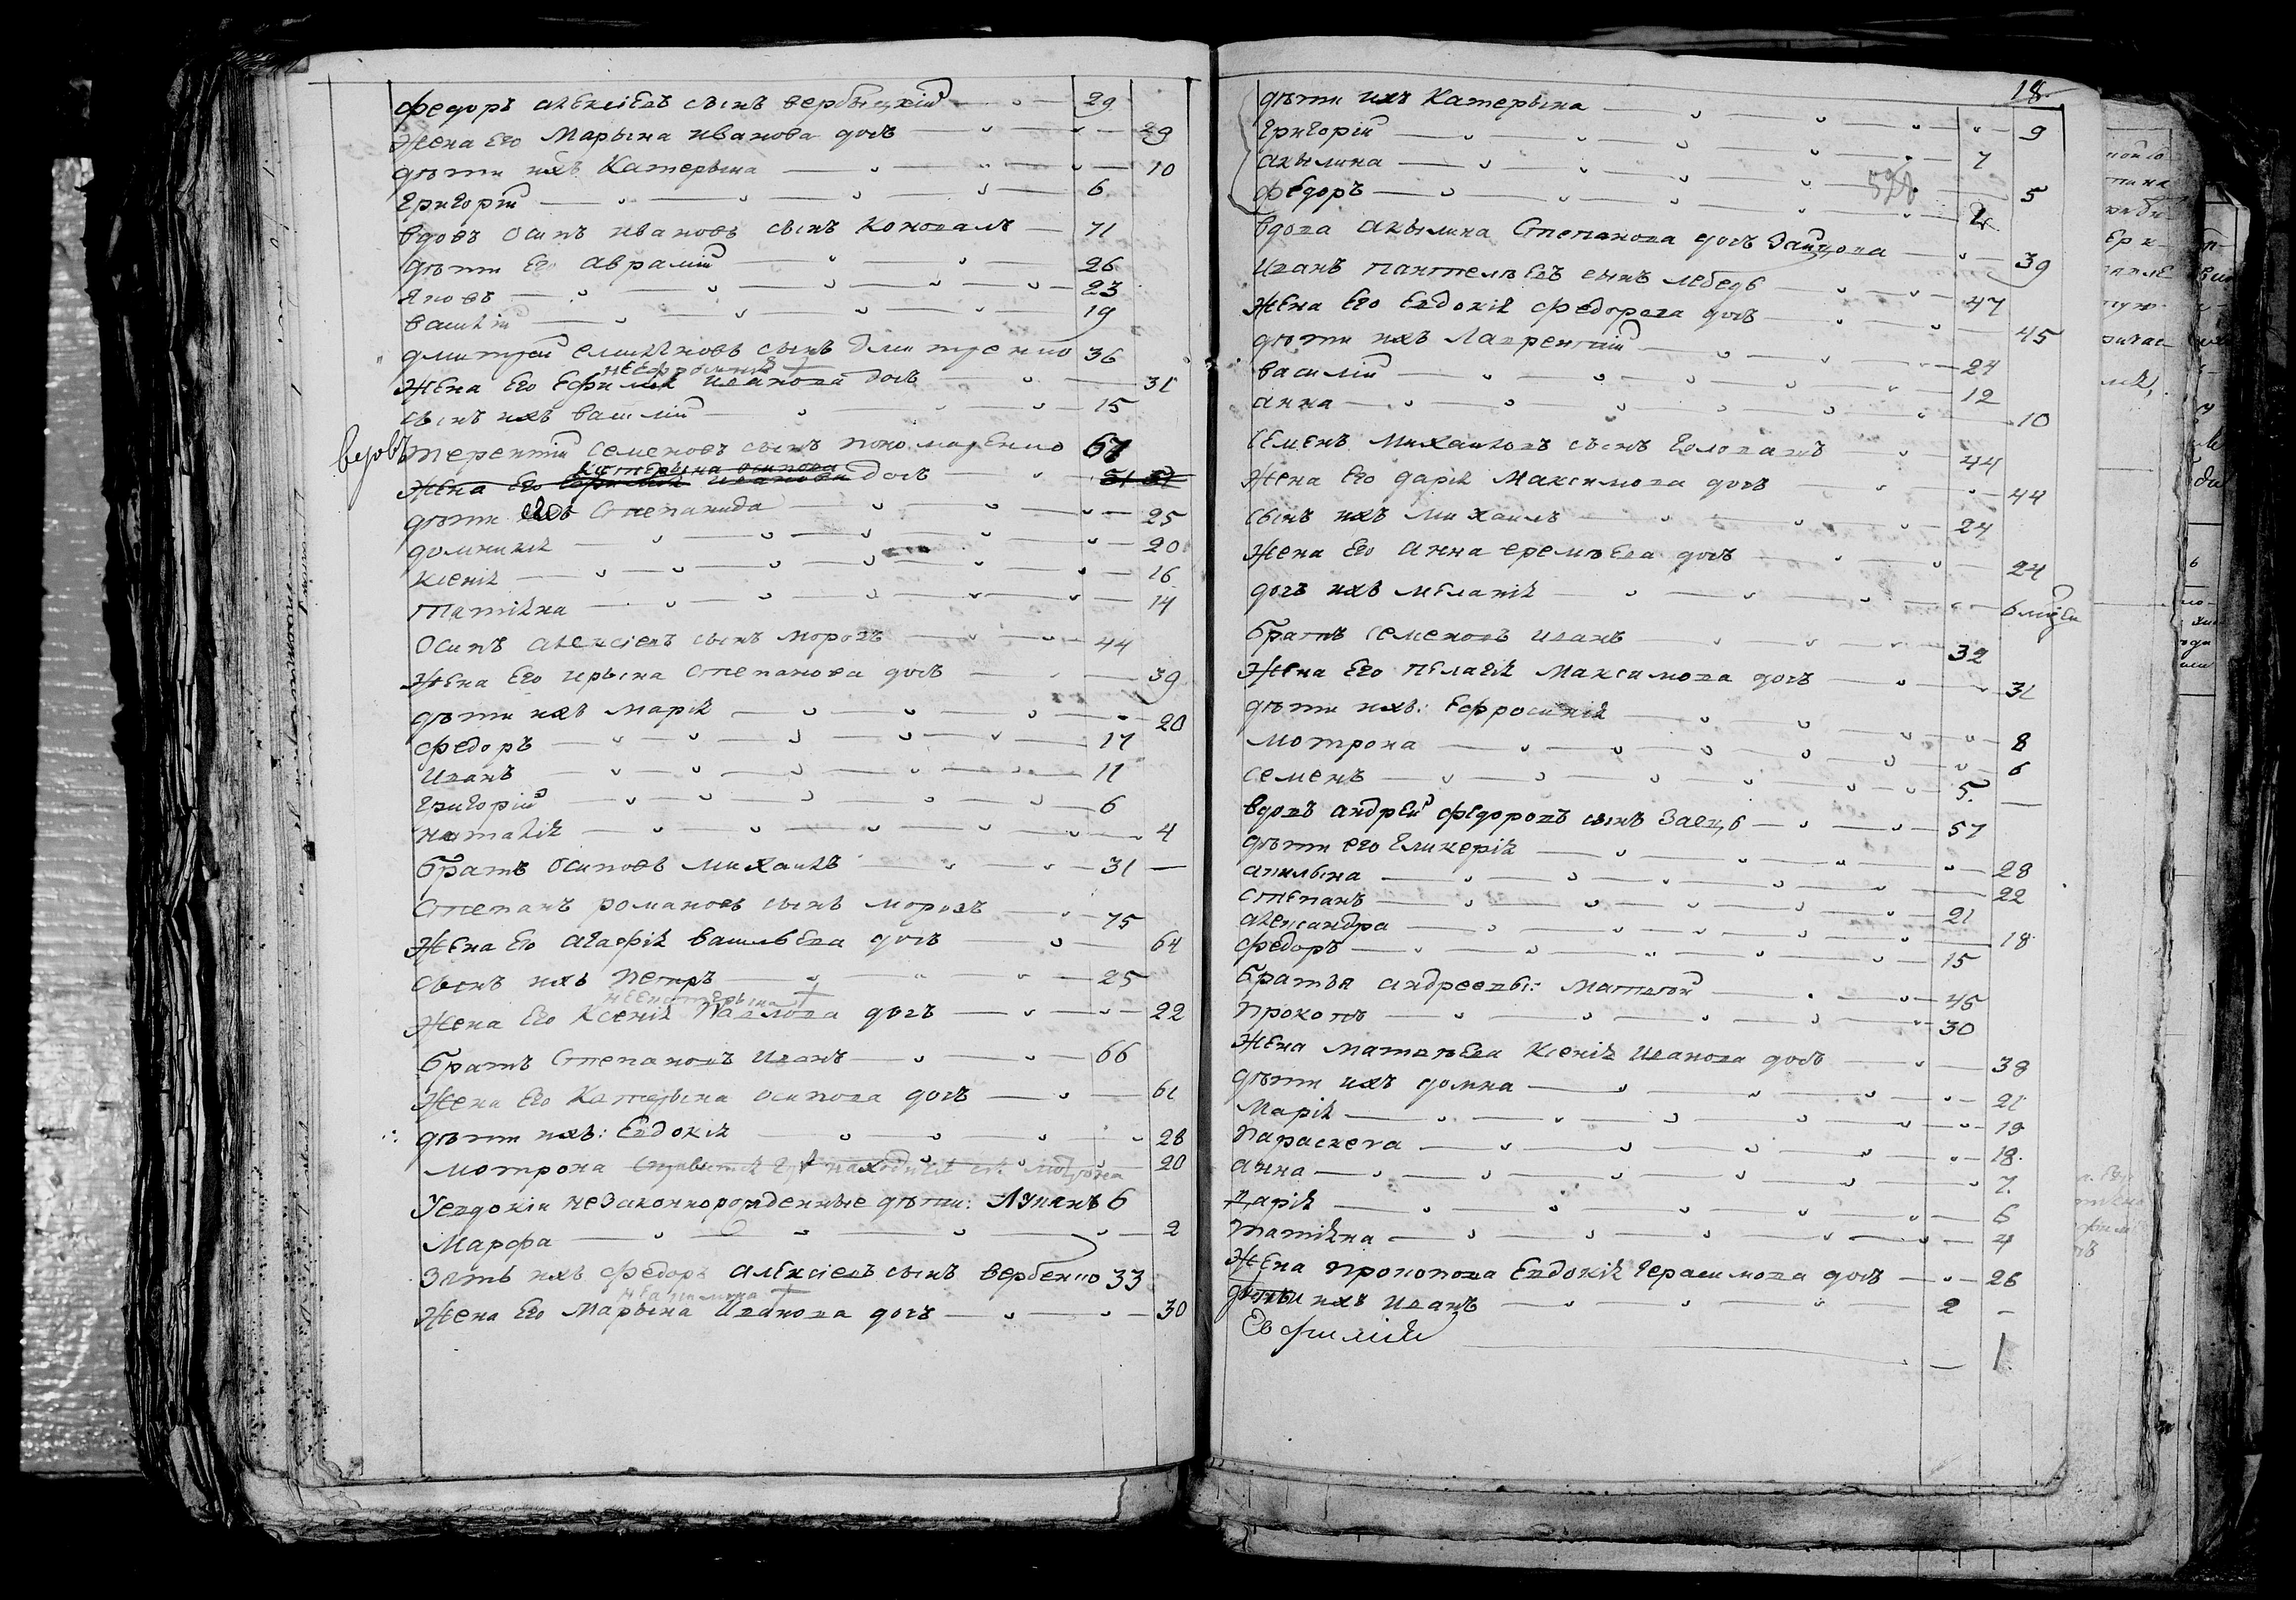 Федоръ Алексіевъ сынъ Вербыцкій 29
Жена Его Марына Иванова дочь 29
дѣти ихъ Катерына 10
Григорій 6
вдовъ Осипъ Ивановъ сынъ Коновалъ 71
дѣти Его Аврамій 26
Яковъ 23
Василій 19
Дмитрій Семиановъ сынъ Дмитренко 36
Жена Его Ефимія Иванова дочь 31
сынъ ихъ Василій 15
вдовъ Терентій Семеновъ сынъ Пономаренко 67
Катерына Осипова
Жена Его Ефимія Иванова дочь 51
дѣти Его Степанида 25
Домникія 20
Ксенія 16
Татіяна 14
Осипъ Алексіевъ сынъ Морозъ 44
Жена Его Ирына Степанова дочь 39
дѣти ихъ Марія 20
Федоръ 17
Иванъ 11
Григорій 6
Наталія 4
Братъ Осиповъ Михаилъ 31
Степанъ Романовъ сынъ Морозъ 75
Жена Его Агафія Васильева дочь 64
сынъ ихъ Петръ 25
не Екатерына
Жена Его Ксенія Павлова дочь 22
Братъ Степановъ Иванъ 66
Жена Его Катерына Осипова дочь 61
дѣти ихъ: Евдокія 28
Мотрона 20
У Евдокіи незаконнорожденные дѣти: Лукянъ 6
Марфа 2
Зять ихъ Федоръ Алексіевъ сынъ Вербенко 33
Жена Его Марына Иванова дочь 30
18
дѣти ихъ Катерына 9
Григорій 7
Акылина 5
598
Федоръ
Вдова Акылина Степанова дочь Зайцова 39
Иванъ Пантелѣевъ сынъ Лебедь 47
Жена Его Евдокія Федорова дочь 45
дѣти ихъ Лаврентій 24
Василій 12
Анна 10
Семенъ Михаиловъ сынъ Головачъ 44
Жена Его Дарія Максимова дочь 44
сынъ ихъ Михаилъ 24
Жена Его Анна Еремѣева дочь 24
дочь ихъ Меланія 6 мѣсец
Братъ Семеновъ Иванъ 32
Жена Его Пелагія Максимова дочь 31
дѣти ихъ: Ефросинія 8
Мотрона 6
Семенъ 5
Вдовъ Андрей Федоровъ сынъ Заецъ 57
дѣти его Гликерія 28
Акилына 22
Степанъ 21
Александра 18
Федоръ 15
Братья Андреевы: Матвѣй 45
Прокопъ 30
Жена Матвѣева Ксенія Иванова дочь 38
дѣти ихъ Домна 21
Марія 19
Параскева 18
Анна 7
Дарія 6
Татіяна 4
Жена Прокопова Евдокія Герасимова дочь 26
дѣти ихъ Иванъ 2
Евфимія 1